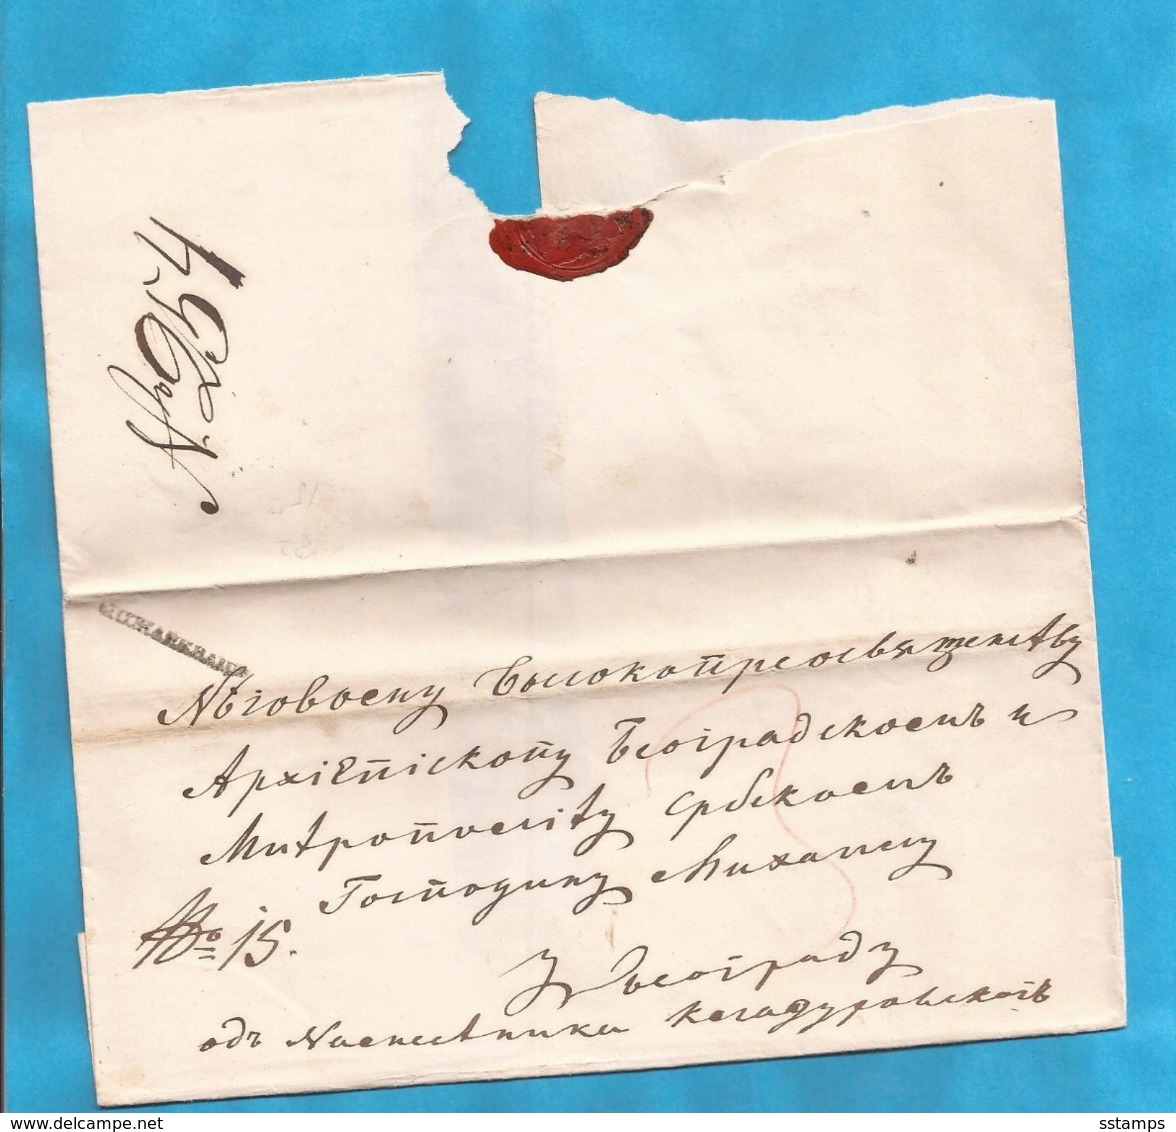 Нѣговому Высокопреосвященству
Архіепіскопу Београдскомъ и
Митрополиту Србскомъ
Господину Михаилу
No 15.
У Београду
одъ Намѣстника
www.delcampe.net
sstamps